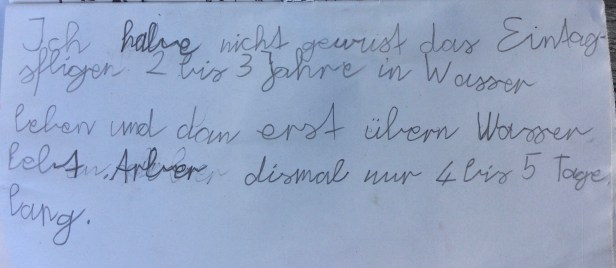 Ich habe nicht gewust das Eintag-
sfligen 2 bis 3 Jahre in Wasser
leben und dan erst übern Wasser
lebt. Aber dismal nur 4 bis 5 Tage
lang.